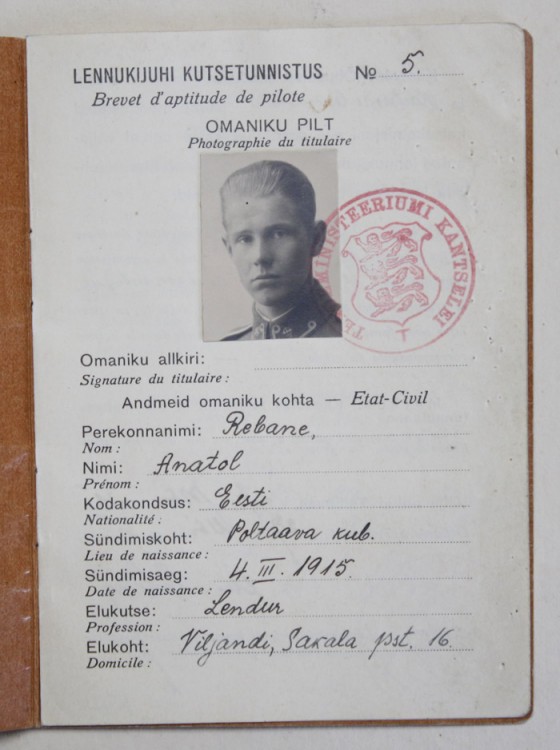 LENNUKIJUHI KUTSETUNNISTUS № 5.
Brevet d'aptitude de pilote
OMANIKU PILT
Photographie du titulaire
MINISTEERIUMI KANTSELEI
Omaniku allkiri:
Signature du titulaire:
Andmeid omaniku kohta — Etat-Civil
Perekonnanimi: Rebane,
Nom:
Nimi: Anatol
Prénom:
Kodakondsus: Eesti
Nationalité:
Sündimiskoht: Poltaava kub.
Lieu de naissance:
Sündimisaeg: 4. III. 1915.
Date de naissance:
Elukutse: Lendur
Profession:
Elukoht: Viljandi, Sakala pst. 16.
Domicile: